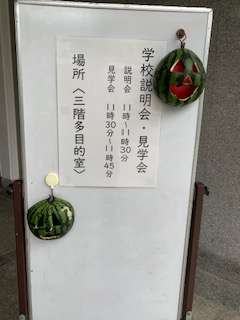 学校説明会・見学会
説明会 11時〜11時30分
見学会 11時30分〜11時45分
場所〈三階多目的室〉